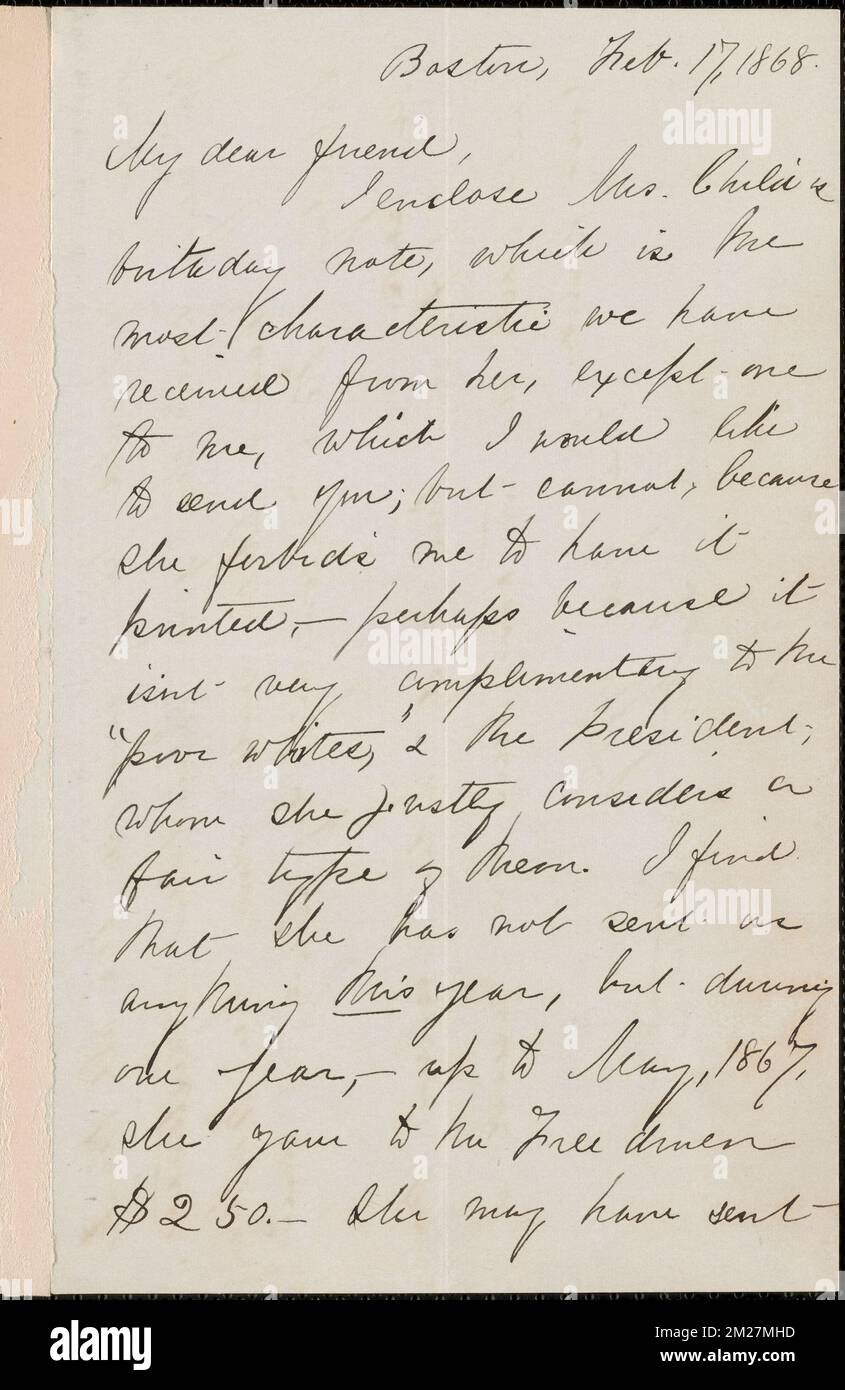 Boston, Feb. 17, 1868.
My dear friend,
I enclose Mrs. Child's
birthday note, which is the
most characteristic we have
received from her, except one
to me, which I would like
to send you; but cannot, because
she forbids me to have it
printed, — perhaps because it
isnt very complimentary to the
"poor whites," & the President,
whom she justly considers a
fair type of them. I find
that she has not sent us
anything this year, but during
one year, — up to May, 1867,
she gave to the Freedmen
$250. — She may have sent
alamy
Image ID: 2M27MHD
www.alamy.com